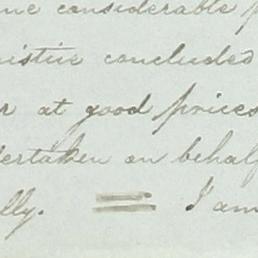 me considerable p
nistice concluded
r at good prices
dertaken on behalf
lly. = I am